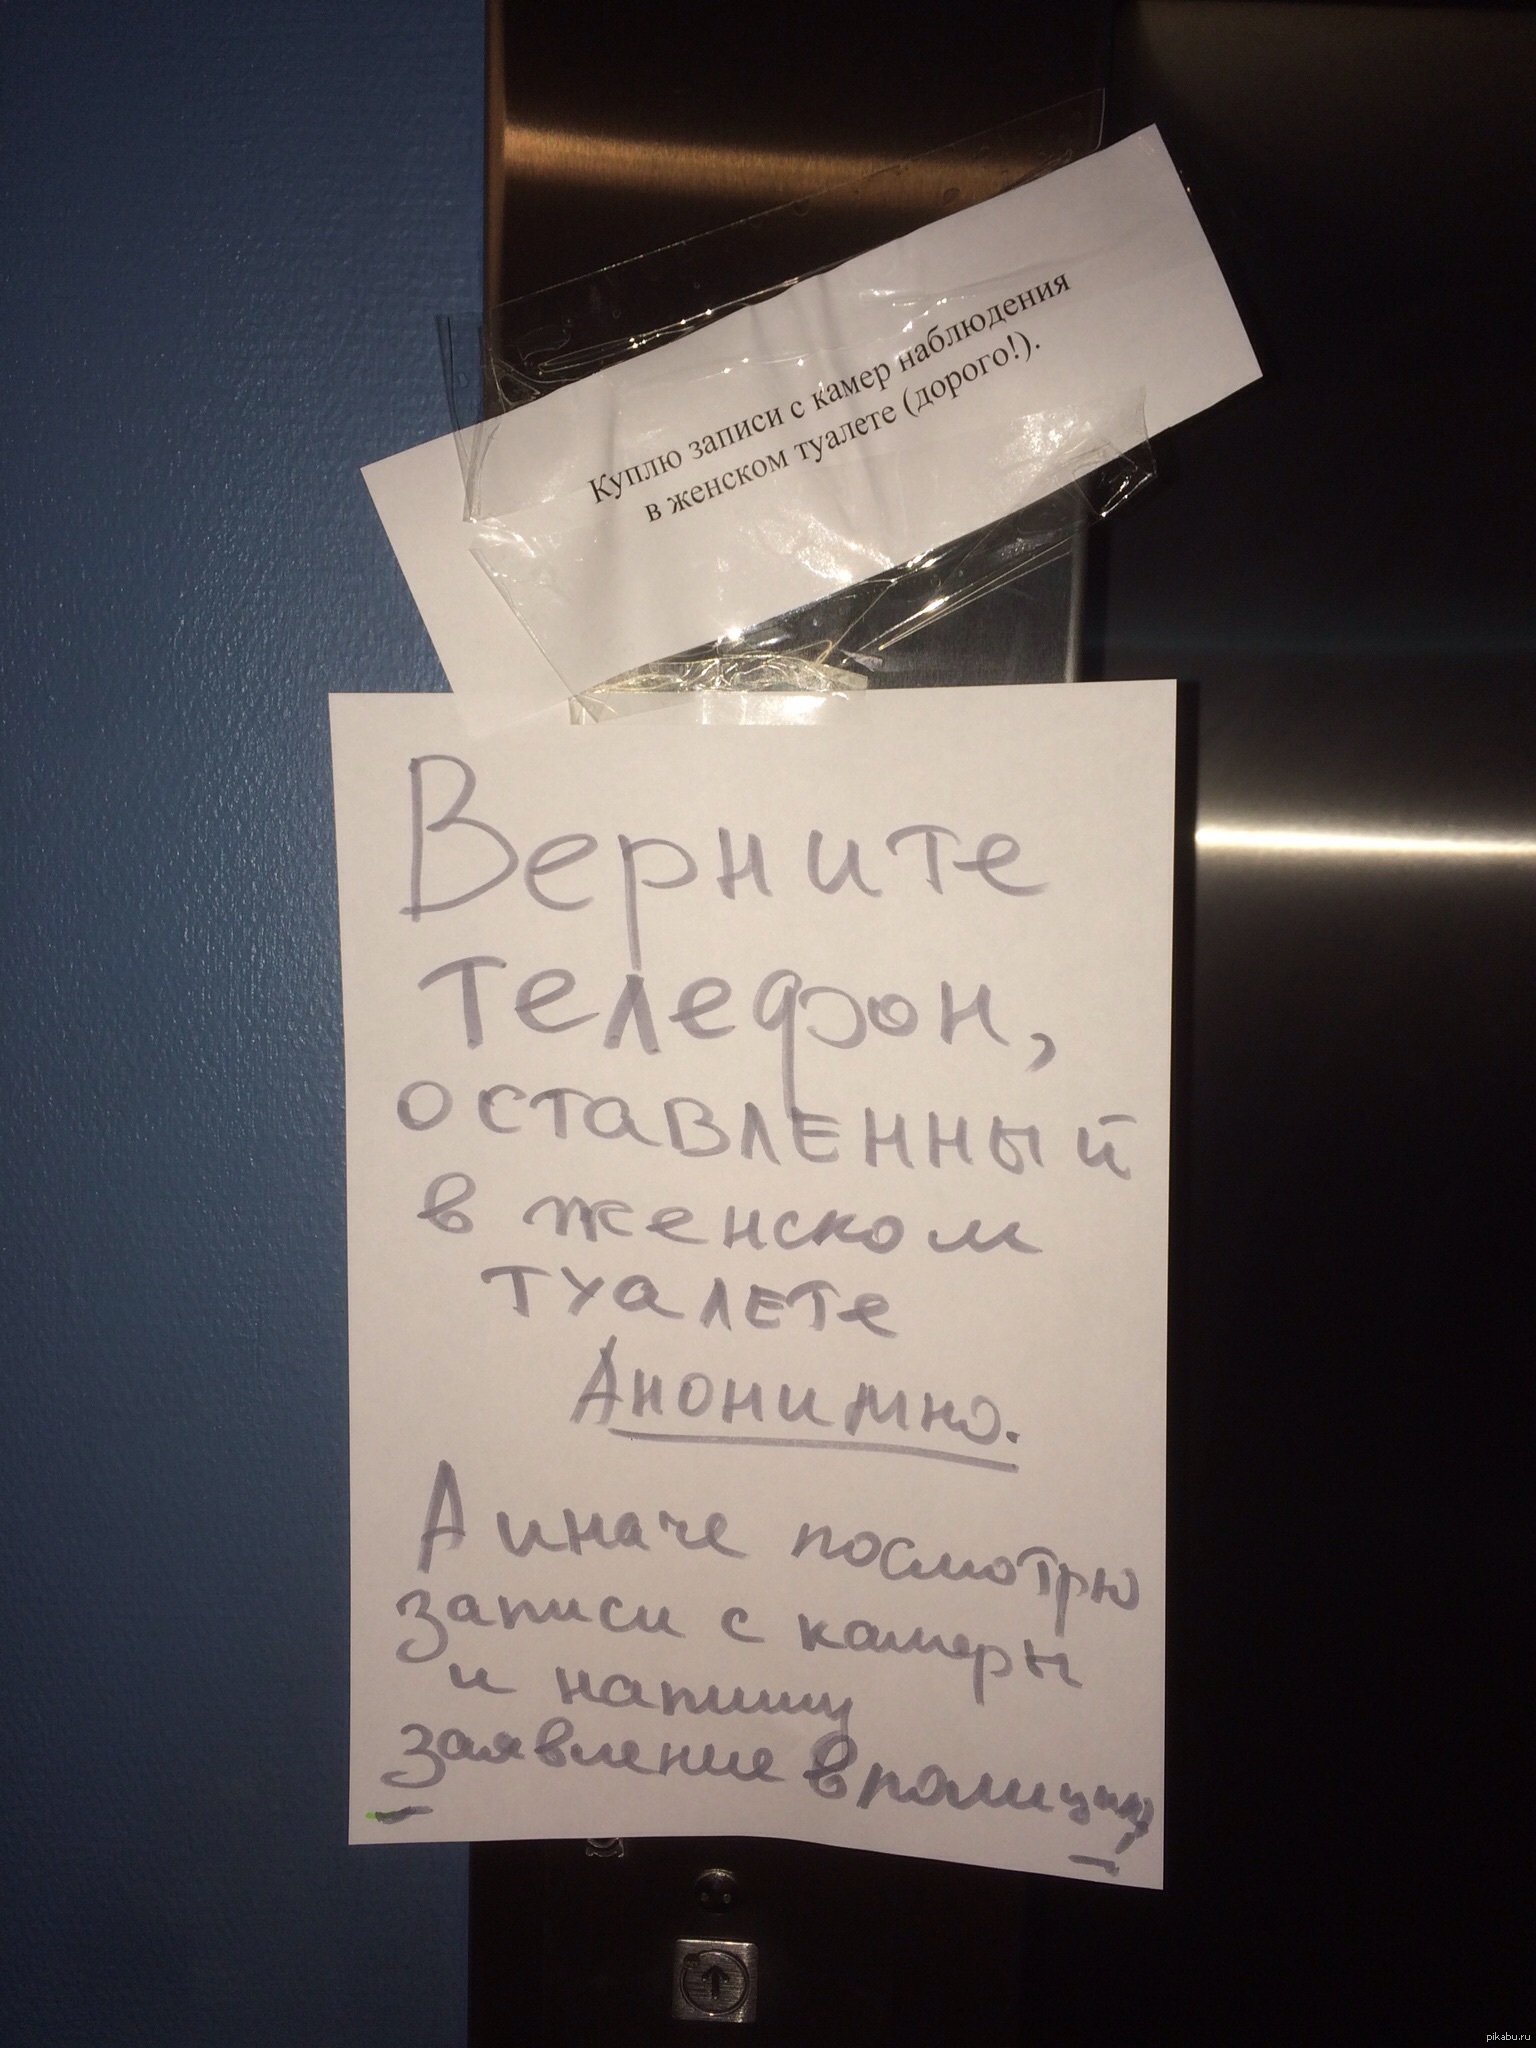 Куплю записи с камер наблюдения
в женском туалете (дорого!).
Верните
телефон,
оставленный
в женском
туалете
Анонимно.
А иначе посмотрю
записи с камеры
и напишу
заявление в полицию
pikabu.ru